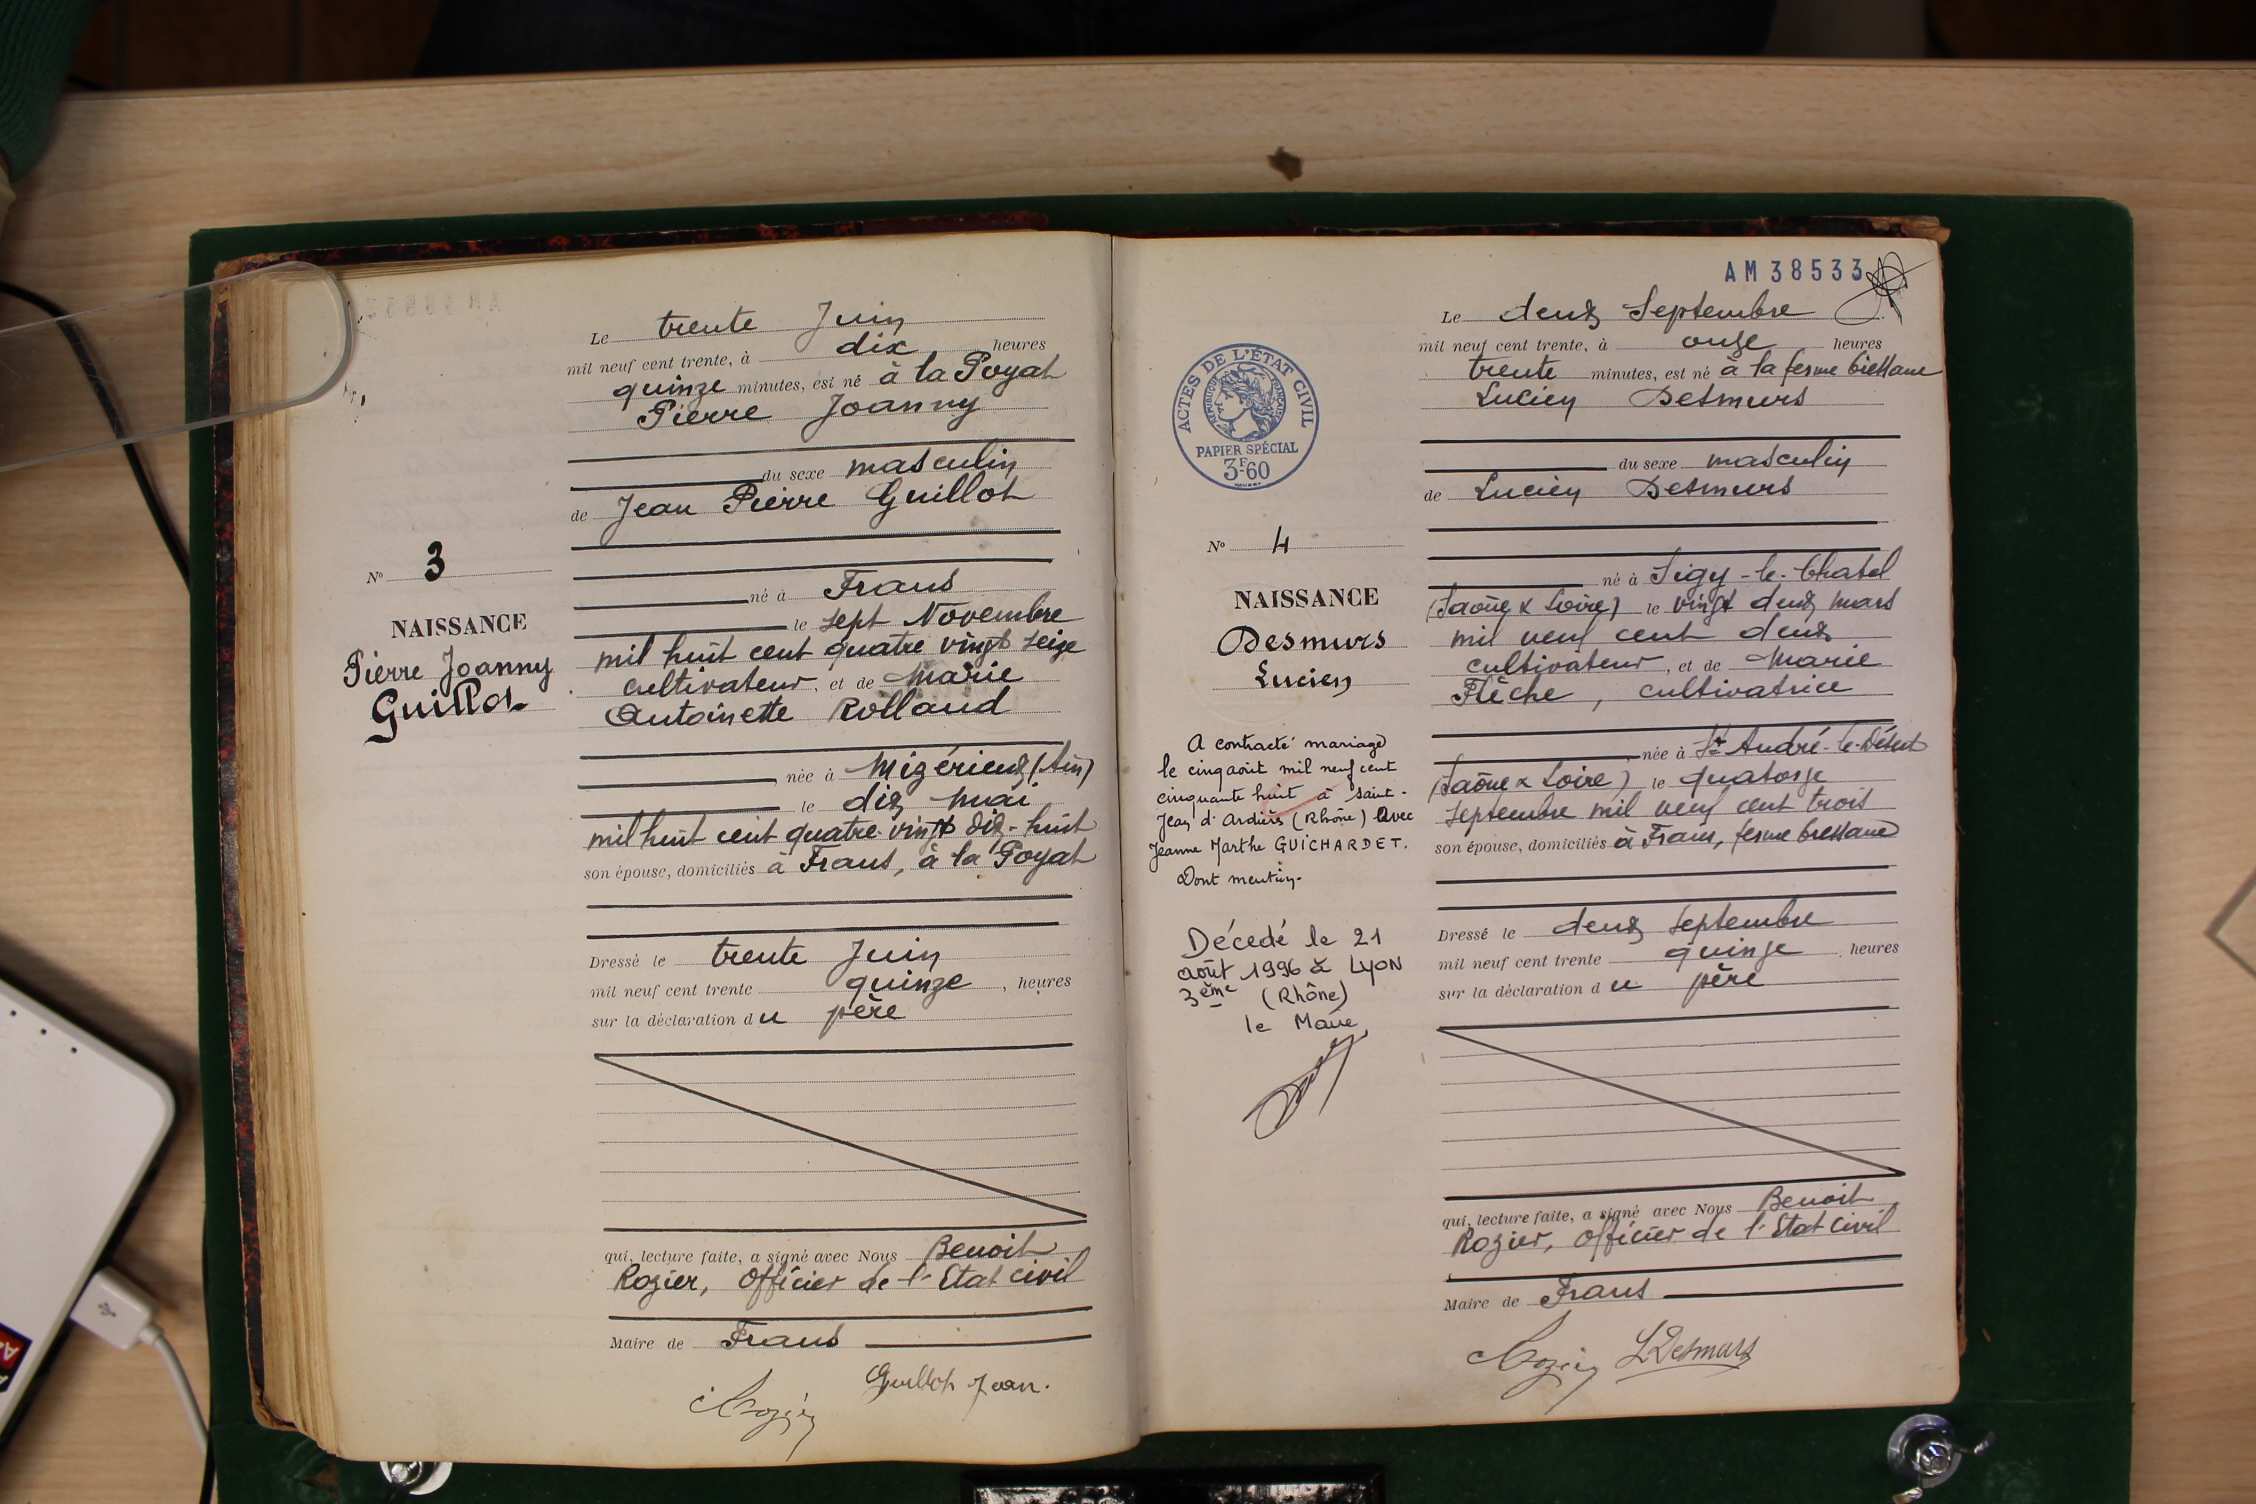 N° 3
NAISSANCE
Pierre Joanny
Guillot
Le trente Juin
mil neuf cent trente, à dix heures
quinze minutes, est né à la Poyat
Pierre Joanny
du sexe masculin
de Jean Pierre Guillot
né à Frans
le sept Novembre
mil huit cent quatre vingt seize
cultivateur, et de Marie
Antoinette Rolland
, née à Mizérieux (Ain)
le dix mai
mil huit cent quatre-vingt dix-huit
son épouse, domiciliés à Frans, à la Poyat
Dressé le trente Juin
mil neuf cent trente quinze, heures
sur la déclaration du père
qui, lecture faite, a signé avec Nous Benoit
Rozier, Officier de l'Etat civil
Maire de Frans
Guillot Jean.
Rozier
AM 38533
ACTES DE L'ÉTAT CIVIL
RÉPUBLIQUE FRANÇAISE
PAPIER SPÉCIAL
3F.60
N° 4
NAISSANCE
Desmurs
Lucien
A contracté mariage
le cinq août mil neuf cent
cinquante huit à Saint-
Jean d'Ardières (Rhône) avec
Jeanne Marthe GUICHARDET.
Dont mention.
Décédé le 21
août 1996 à LYON
3ème (Rhône)
le Maire
Le deux Septembre
mil neuf cent trente, à onze heures
trente minutes, est né à la ferme bressane
Lucien Desmurs
du sexe masculin
de Lucien Desmurs
né à Sigy-le-Chatel
(Saône & Loire) le vingt deux mars
mil neuf cent deux
cultivateur, et de Marie
Flèche, cultivatrice
, née à St André-le-Désert
(Saône & Loire), le quatorze
septembre mil neuf cent trois
son épouse, domiciliés à Frans, ferme bressane
Dressé le deux Septembre
mil neuf cent trente quinze, heures
sur la déclaration du père
qui, lecture faite, a signé avec Nous Benoit
Rozier, Officier de l'Etat civil
Maire de Frans
Rozier L Desmurs